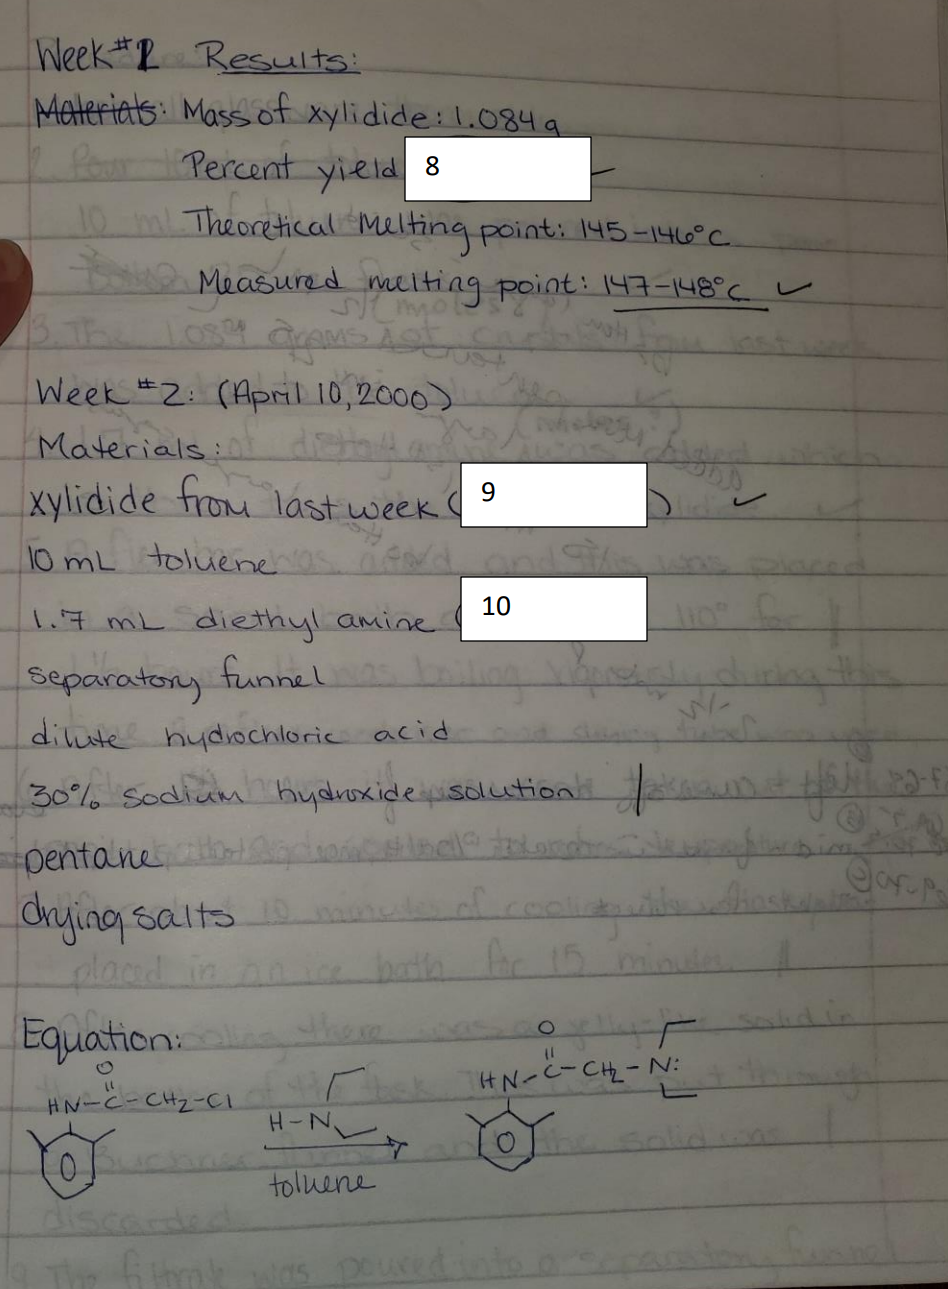 Week #1 Results:
Materials: Mass of xylidide: 1.084 g
Percent yield 8
Theoretical Melting point: 145-146°C
Measured melting point: 147-148°C ✓
Week #2: (April 10, 2000)
Materials:
xylidide from last week ( 9 ) ✓
10 mL toluene
1.7 mL diethyl amine ( 10
separatory funnel
dilute hydrochloric acid
30% sodium hydroxide solution
pentane
drying salts
Equation:
O
HN-C-CH2-Cl
H-N
toluene
O
HN-C-CH2-N: